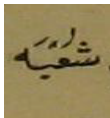 شعبه